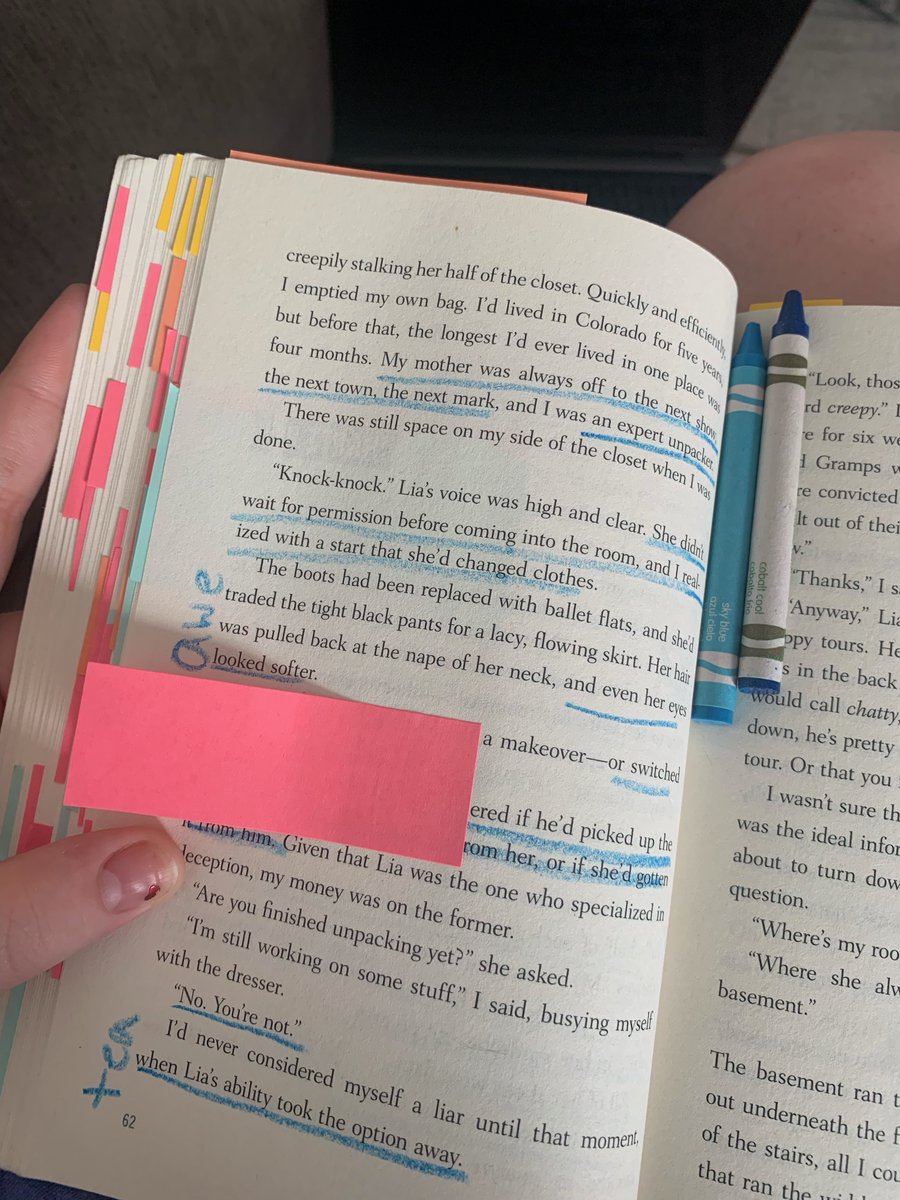 creepily stalking her half of the closet. Quickly and efficiently,
I emptied my own bag. I'd lived in Colorado for five years,
but before that, the longest I'd ever lived in one place was
four months. My mother was always off to the next show,
the next town, the next mark, and I was an expert unpacker.
There was still space on my side of the closet when I was
done.
"Knock-knock." Lia's voice was high and clear. She didn't
wait for permission before coming into the room, and I real-
ized with a start that she'd changed clothes.
The boots had been replaced with ballet flats, and she'd
traded the tight black pants for a lacy, flowing skirt. Her hair
was pulled back at the nape of her neck, and even her eyes
looked softer.
awe
a makeover—or switched
ered if he'd picked up the
rom her, or if she'd gotten
it from him. Given that Lia was the one who specialized in
deception, my money was on the former.
"Are you finished unpacking yet?" she asked.
"I'm still working on some stuff," I said, busying myself
with the dresser.
"No. You're not."
I'd never considered myself a liar until that moment,
when Lia's ability took the option away.
tea
62
sky blue
azul cielo
cobalt cool
"Look, thos
rd creepy."
e for six we
Gramps w
re convicted
lt out of thei
"Thanks," I sa
"Anyway," Lia
ppy tours. He
s in the back
would call chatty,
down, he's pretty
tour. Or that you
I wasn't sure th
was the ideal infor
about to turn dow
question.
"Where's my roo
"Where she alw
basement."
The basement ran t
out underneath the f
of the stairs, all I cou
that ran the